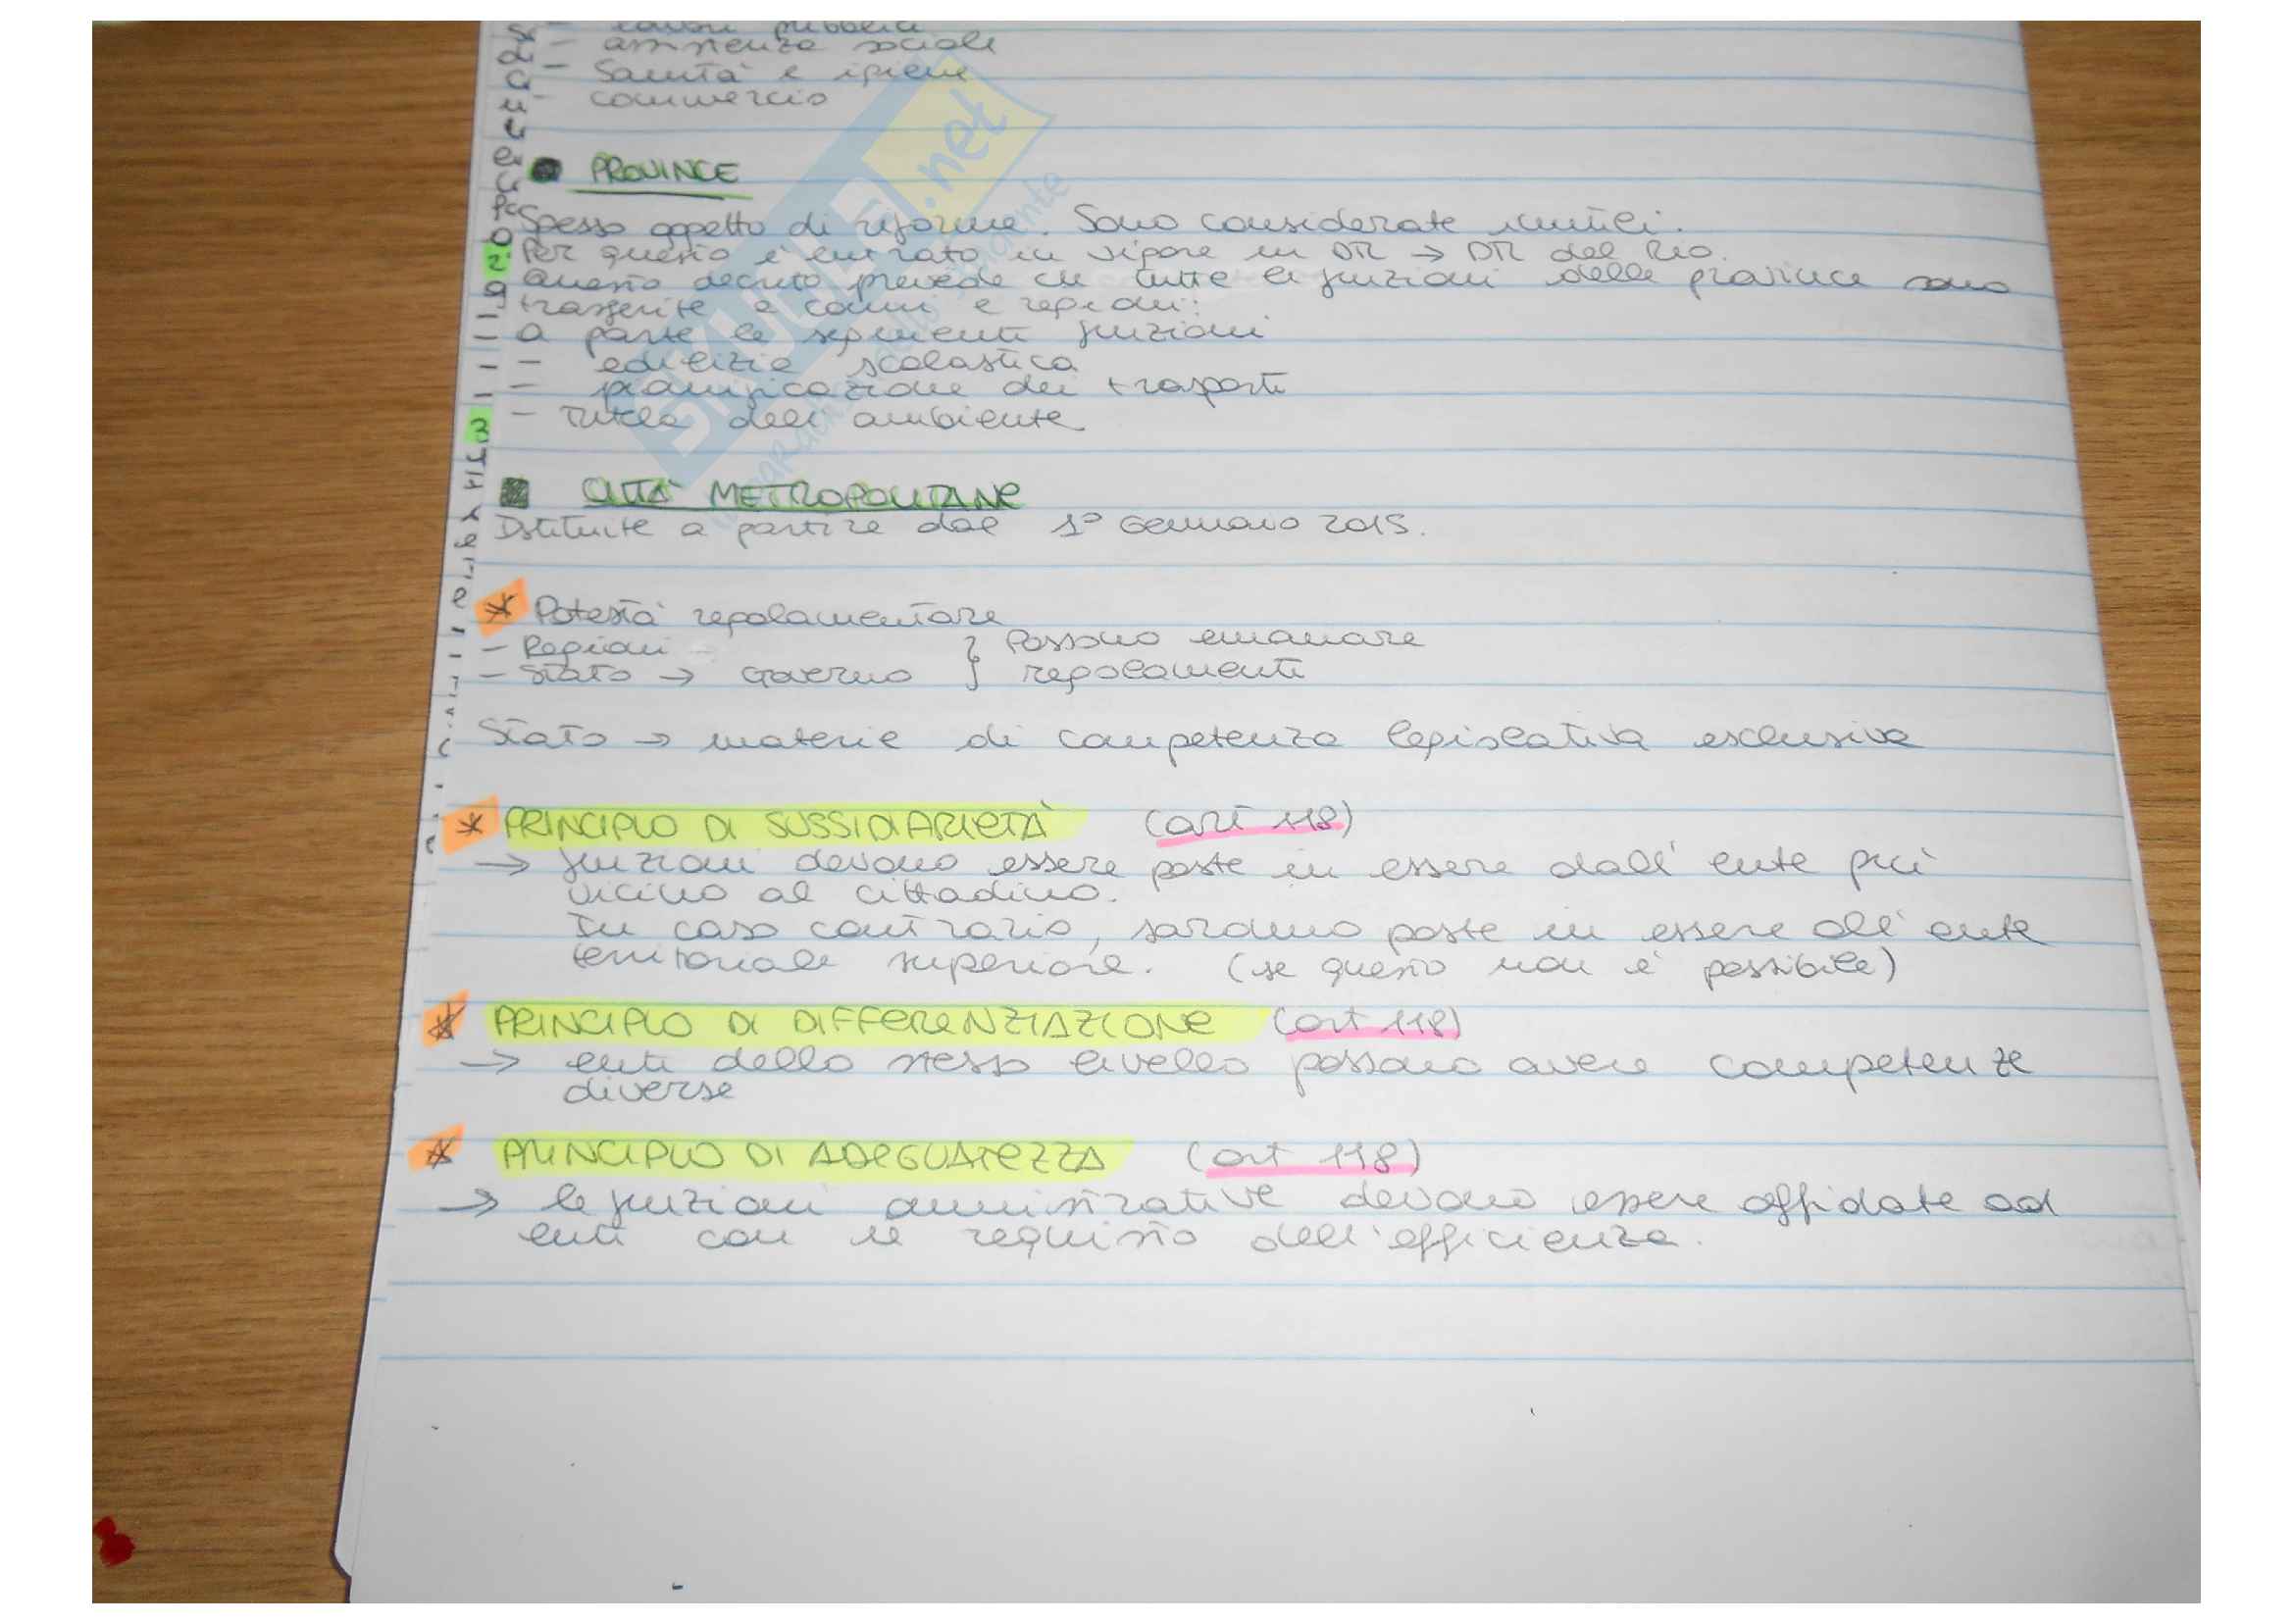 - edifici pubblici
- assistenza sociale
- Sanità e igiene
- commercio
PROVINCE
Spesso oggetto di riforme. Sono considerate inutili.
Per questo è entrato in vigore un DR → DR del Rio.
Questo decreto prevede che tutte le funzioni delle province sono
trasferite a comuni e regioni:
a parte le seguenti funzioni
- edilizia scolastica
- pianificazione dei trasporti
- Tutela dell'ambiente
CITTÀ METROPOLITANE
Istituite a partire dal 1° Gennaio 2015.
* Potestà regolamentare
- Regioni } Possono emanare
- Stato → Governo } regolamenti
Stato → materie di competenza legislativa esclusiva
* PRINCIPIO DI SUSSIDIARIETÀ (art 118)
→ funzioni devono essere poste in essere dall'ente più
vicino al cittadino.
In caso contrario, saranno poste in essere all'ente
territoriale superiore. (se questo non è possibile)
* PRINCIPIO DI DIFFERENZIAZIONE (art 118)
→ enti dello stesso livello possono avere competenze
diverse
* PRINCIPIO DI ADEGUATEZZA (art 118)
→ le funzioni amministrative devono essere affidate ad
enti con il requisito dell'efficienza.
SKUOLA.net